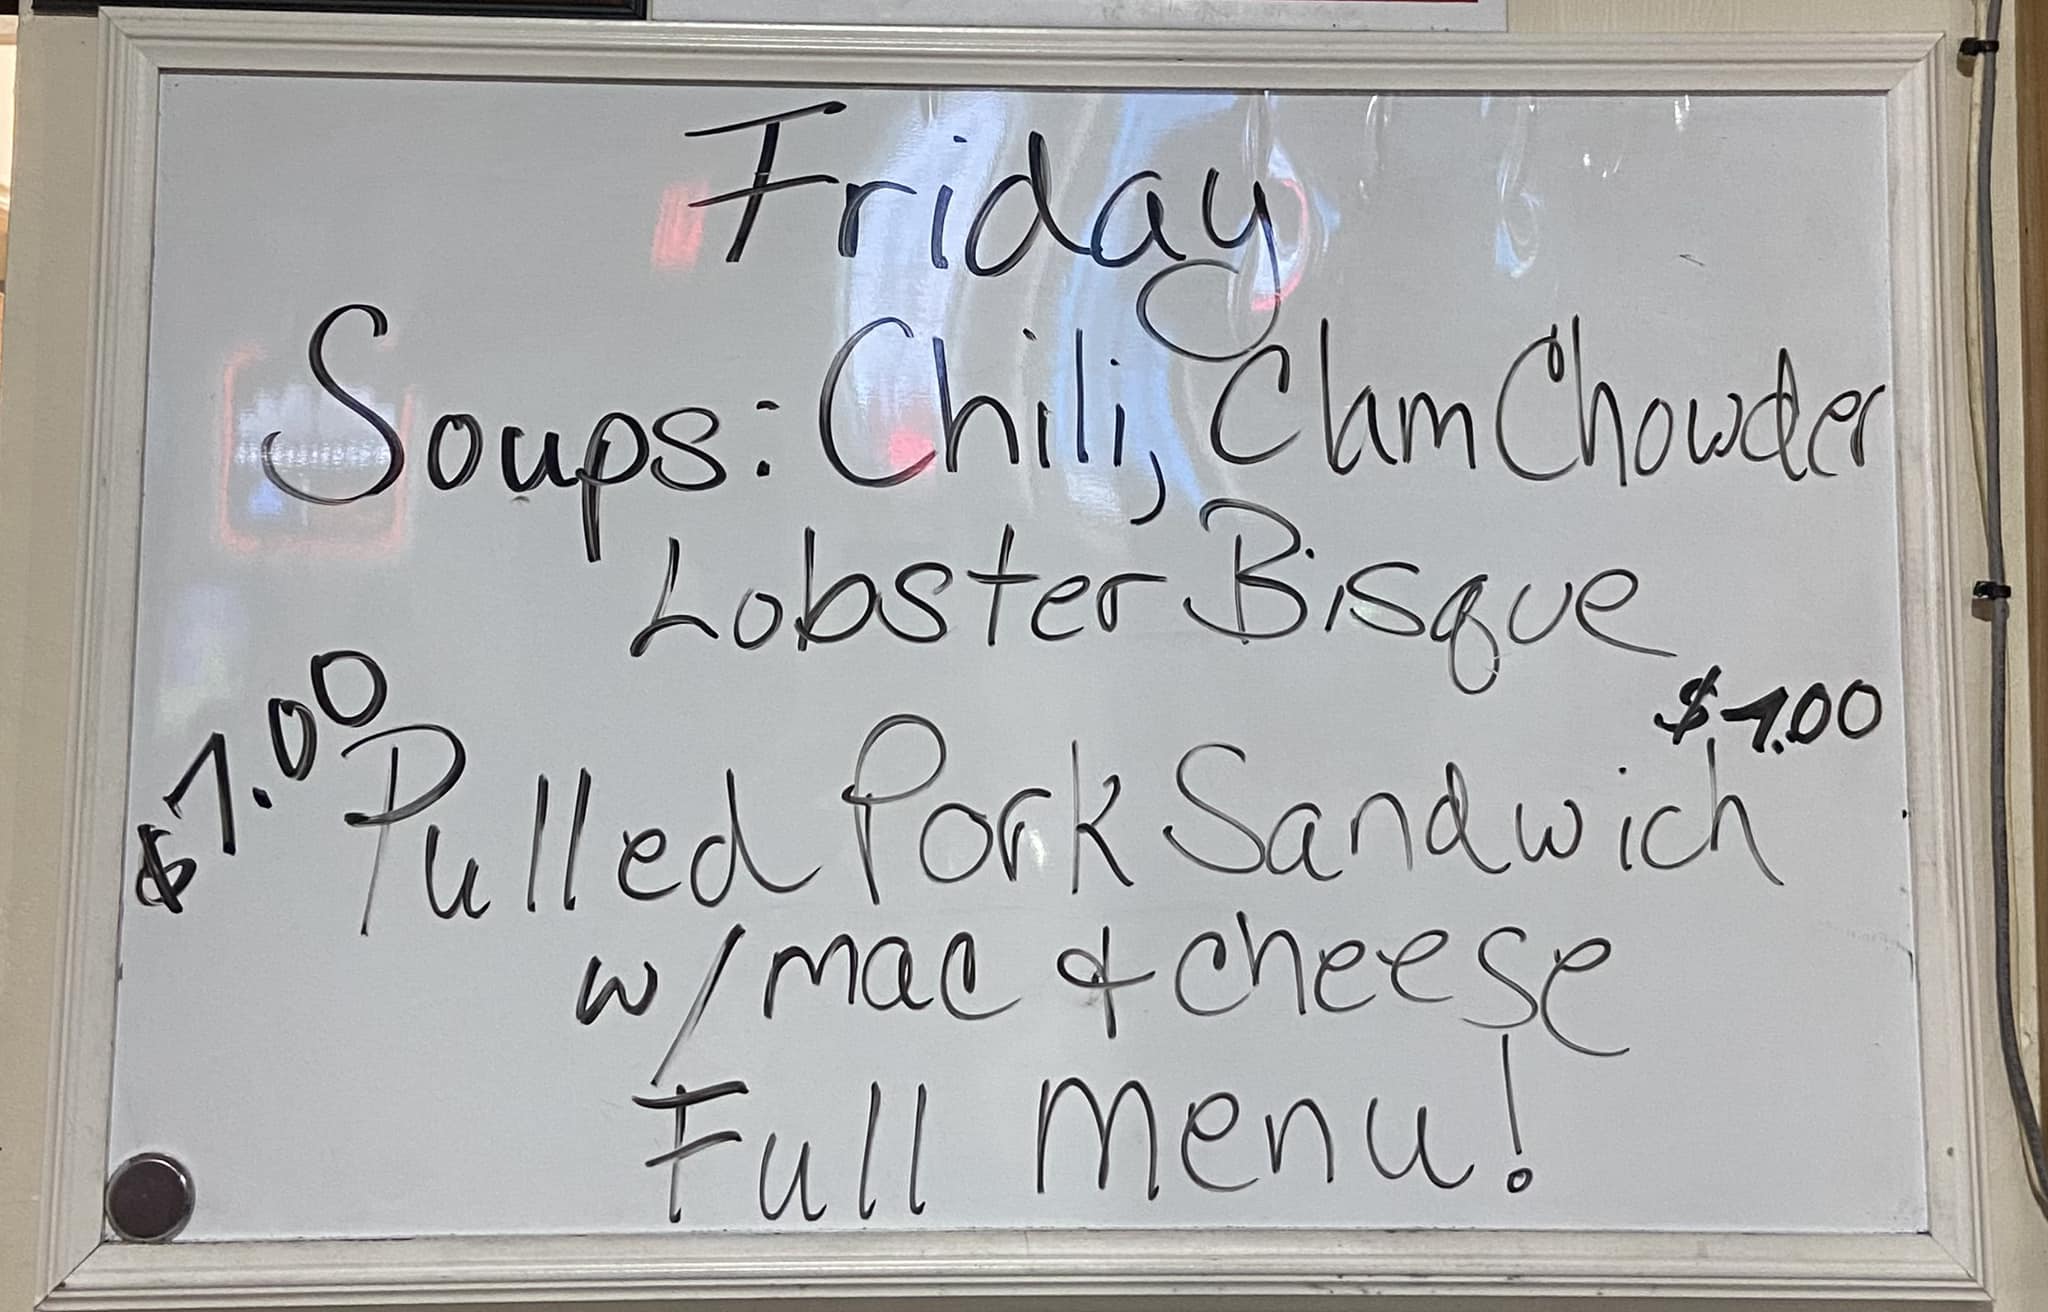 Friday
Soups: Chili, Clam Chowder
Lobster Bisque
$7.00 Pulled Pork Sandwich $7.00
w/mac & cheese
Full menu!